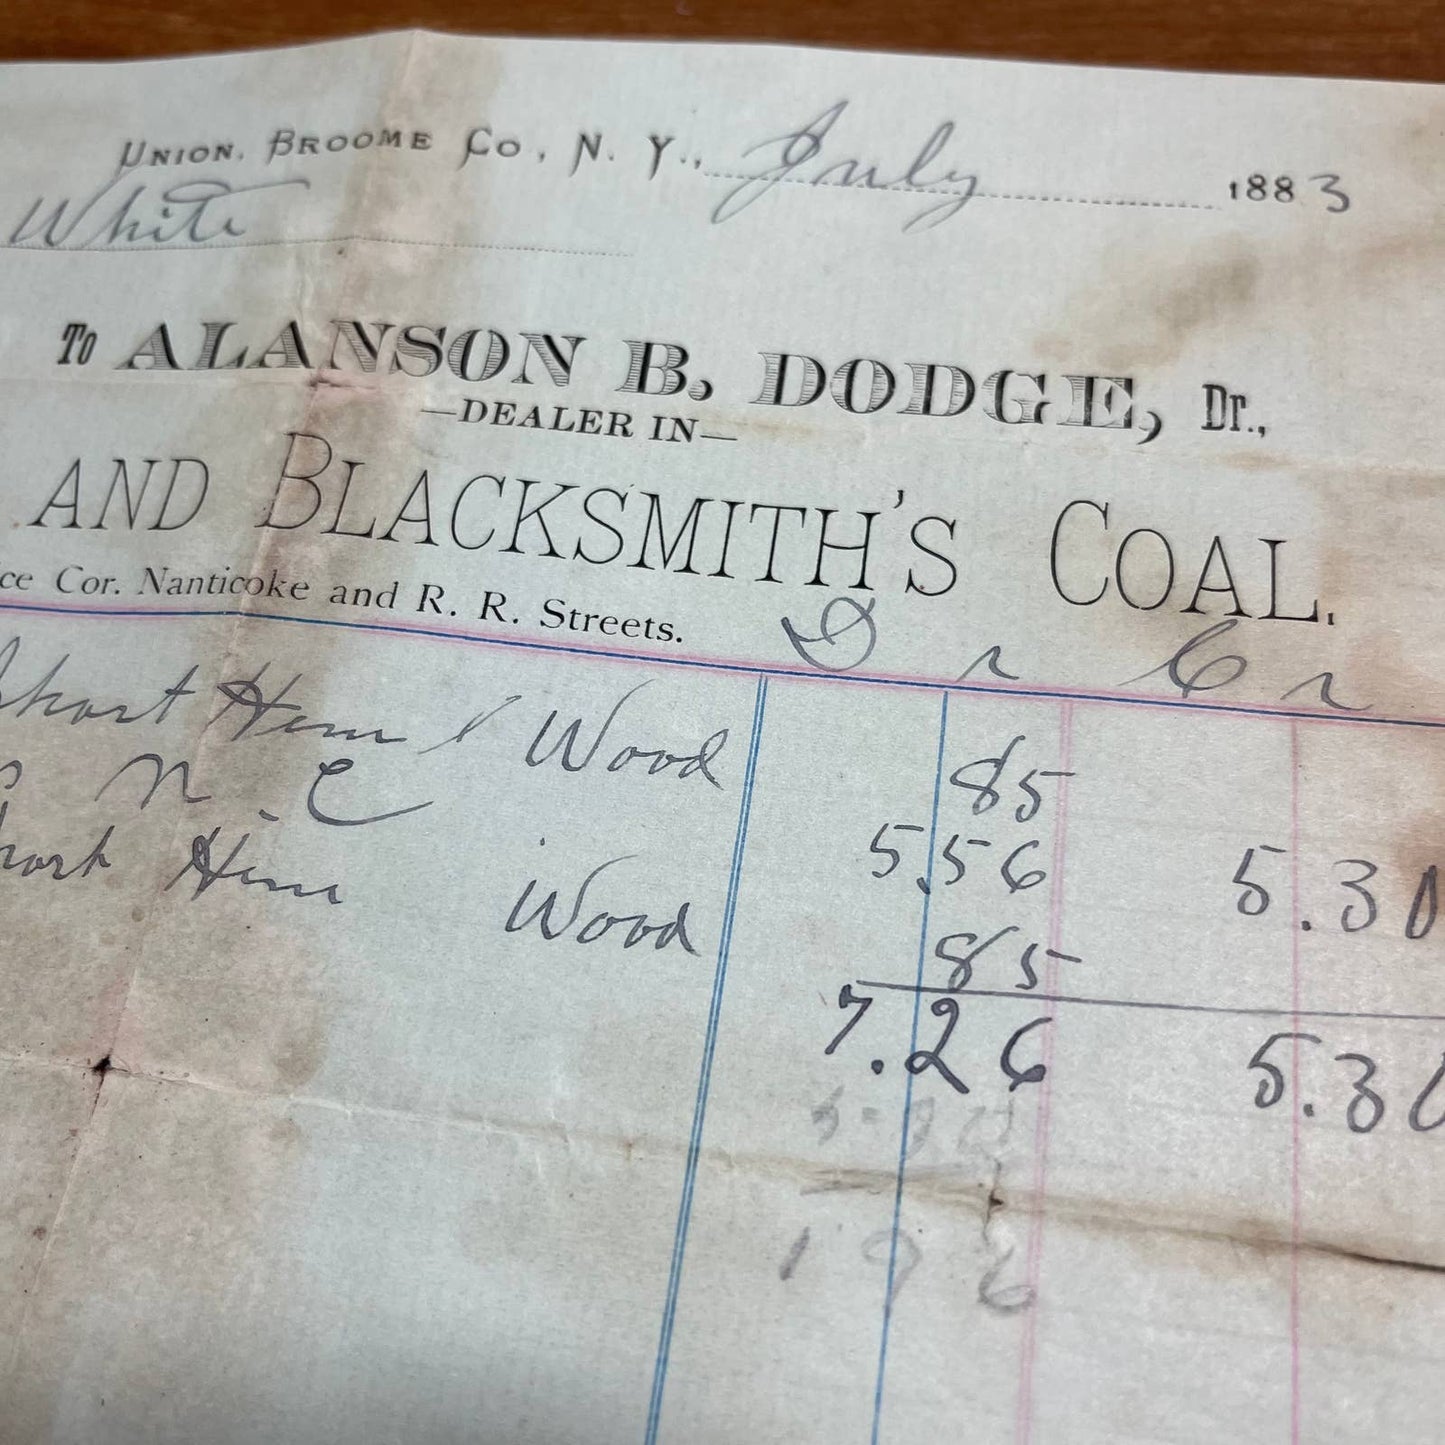 UNION, BROOME CO, N. Y., July 1883
White
To ALANSON B. DODGE, Dr.,
—DEALER IN—
AND BLACKSMITH'S COAL.
ce Cor. Nanticoke and R. R. Streets.
Dr Cr
short Hem Wood 85
N. C 5.56 5.30
hort Hem Wood 85
7.26 5.30
1 96